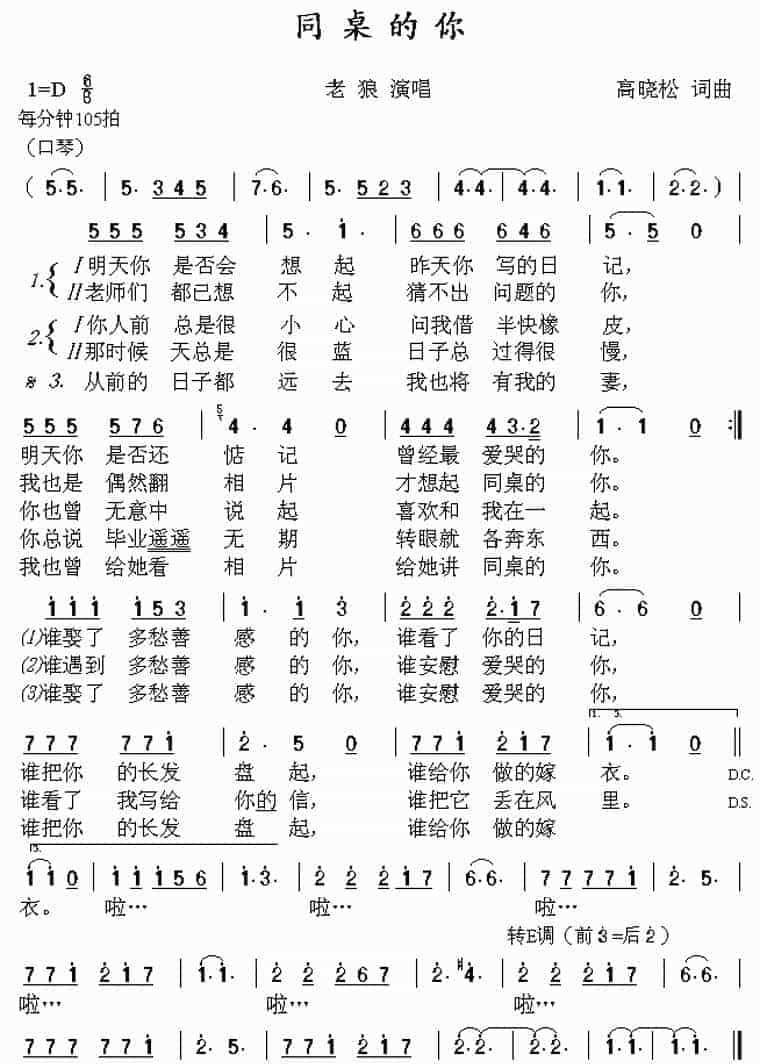 同桌的你
1=D 6/8 老狼 演唱 高晓松 词曲
每分钟105拍
（口琴）
( 5· 5· | 5· 3 4 5 | 7· 6· | 5· 5 2 3 | 4· 4· | 4· 4· | 1· 1· | 2· 2· ) |
5 5 5 5 3 4 | 5 · 1 · | 6 6 6 6 4 6 | 5 · 5 0 |
1. I 明天你 是否会 想 起 昨天你 写的日 记，
II 老师们 都已想 不 起 猜不出 问题的 你，
2. I 你人前 总是很 小 心 问我借 半快橡 皮，
II 那时候 天总是 很 蓝 日子总 过得很 慢，
3. 从前的 日子都 远 去 我也将 有我的 妻，
5 5 5 5 7 6 | 5 4 · 4 0 | 4 4 4 4 3· 2 | 1 · 1 0 :||
明天你 是否还 惦 记 曾经最 爱哭的 你。
我也是 偶然翻 相 片 才想起 同桌的 你。
你也曾 无意中 说 起 喜欢和 我在一 起。
你总说 毕业遥遥 无 期 转眼就 各奔东 西。
我也曾 给她看 相 片 给她讲 同桌的 你。
1 1 1 1 5 3 | 1 · 1 3 | 2 2 2 2· 1 7 | 6 · 6 0 |
(1)谁娶了 多愁善 感 的 你， 谁看了 你的日 记，
(2)谁遇到 多愁善 感 的 你， 谁安慰 爱哭的 你，
(3)谁娶了 多愁善 感 的 你， 谁安慰 爱哭的 你，
7 7 7 7 7 1 | 2 · 5 0 | 7 7 1 2 1 7 | 1 · 1 0 ||
谁把你 的长发 盘 起， 谁给你 做的嫁 衣。 D.C.
谁看了 我写给 你的 信， 谁把它 丢在风 里。 D.S.
谁把你 的长发 盘 起， 谁给你 做的嫁
1 1 0 | 1 1 1 5 6 | 1· 3· | 2 2 2 1 7 | 6· 6· | 7 7 7 7 1 | 2· 5· |
衣。 啦… 啦… 啦…
转E调（前3=后2）
7 7 1 2 1 7 | 1· 1· | 2 2 2 1 7 | 2· #4· | 2 2 2 1 7 | 6· 6· |
啦… 啦… 啦…
7 7 7 7 7 1 | 2· 5· | 7 7 1 2 1 7 | 1· 1· | 1· 1· | 1· 1· ||